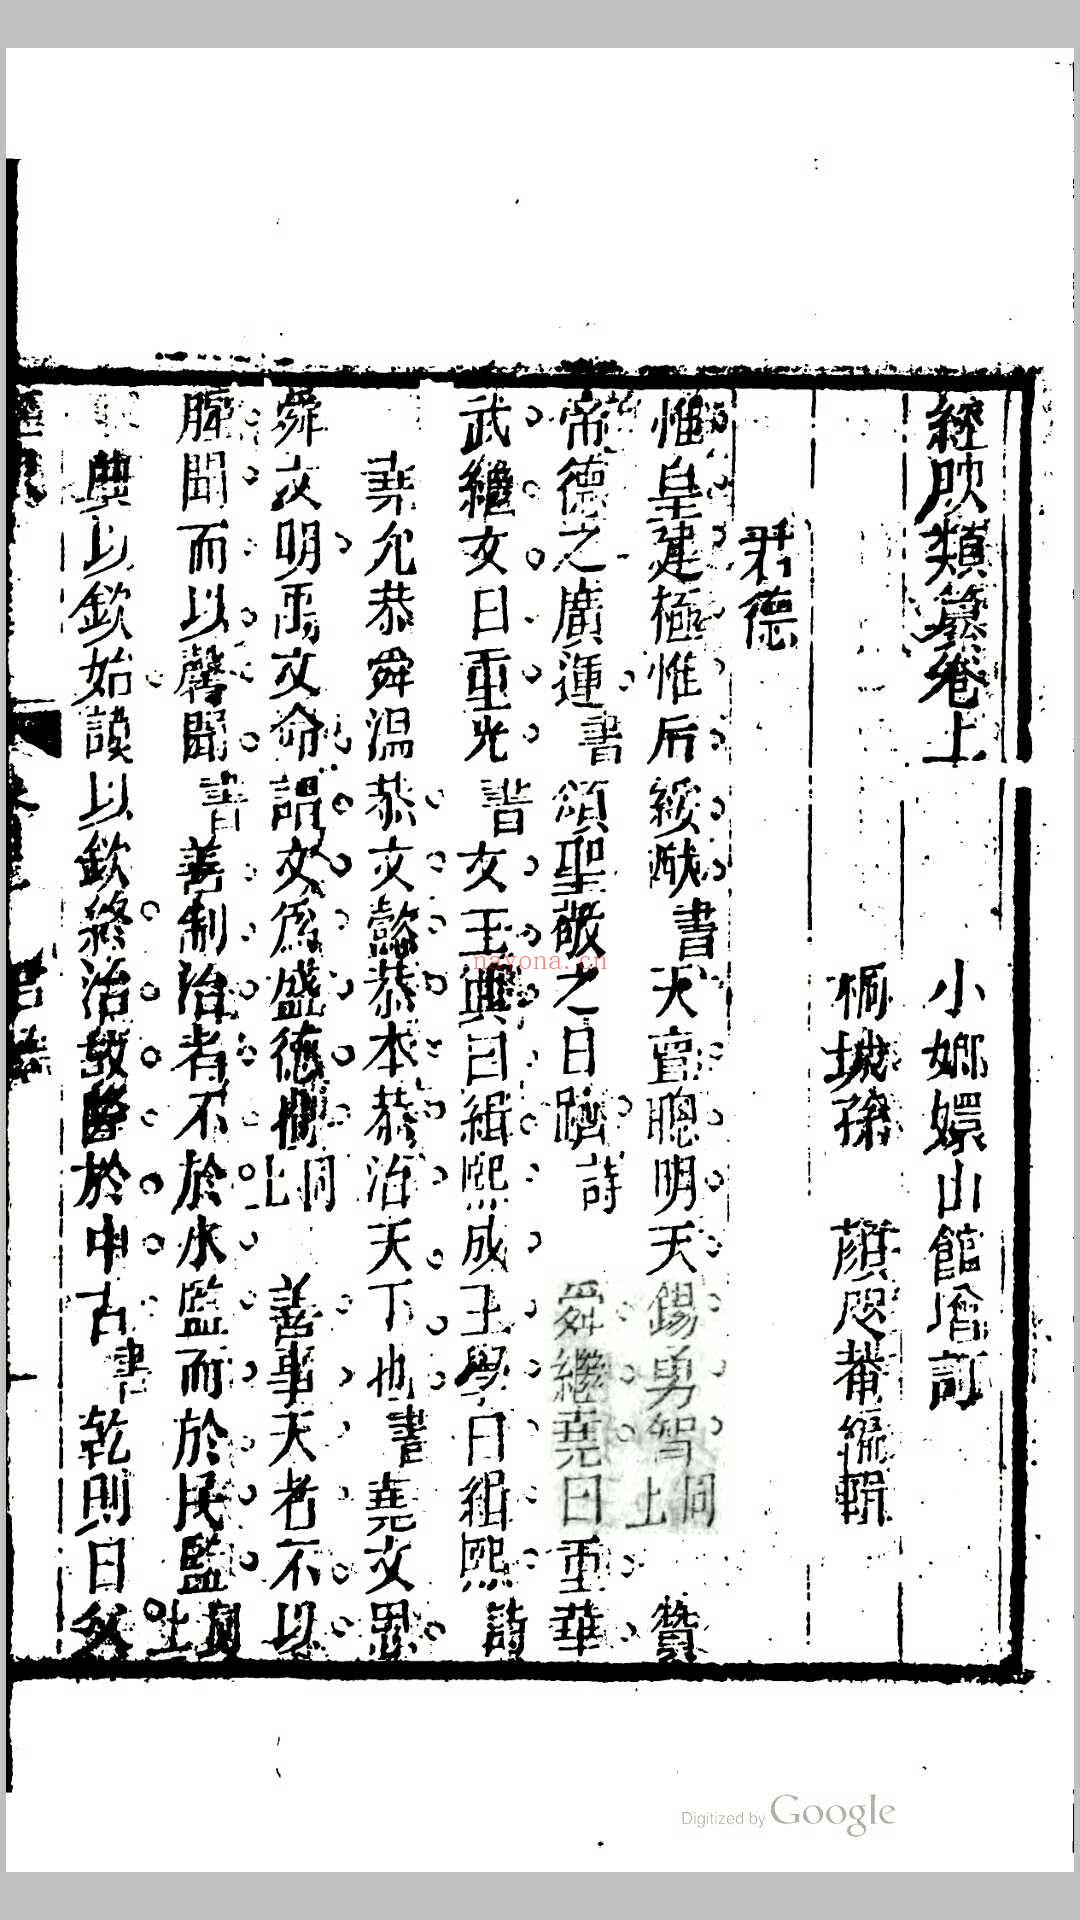 經腴類纂卷上　小嫏嬛山館增訂
桐城孫　顔咫菴編輯
君德
惟皇建極惟后綏猷書天亶聰明天錫勇智同上　贊
帝德之廣運書頌聖敬之日躋詩　舜繼堯曰重華
武繼文曰重光書文王興曰緝熙成王學曰緝熙詩
堯允恭舜温恭文懿恭本恭治天下也書堯文思
舜文明禹文命謂文爲盛德同上　善事天者不以
腥聞而以馨聞書善制治者不於水監而於民監同上
典以欽始謨以欽終治敎於中古書乾則曰
nayona.cn
Digitized by Google